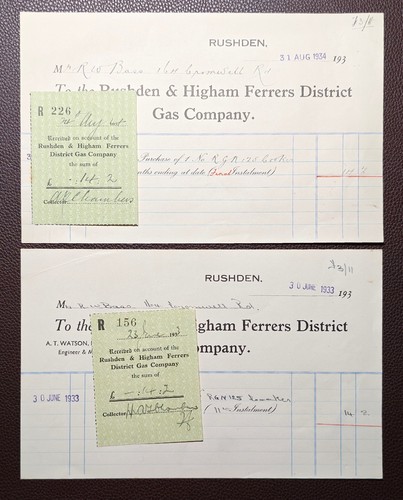 F3/11
RUSHDEN,
31 AUG 1934 193
Mr K W Bass 164 Cromwell Rd
To the Rushden & Higham Ferrers District
Gas Company.
R 226
Aug
Received on account of the
Rushden & Higham Ferrers
District Gas Company
the sum of
£ - : 14 : 2
Collector
Purchase of 1 No R.G.R. Cooker
ths ending at date Instalment)
14 2
F3/11
RUSHDEN,
30 JUNE 1933 193
Mr K W Bass 164 Cromwell Rd,
To the gham Ferrers District
A. T. WATSON,
Engineer & M
ompany.
R 156
23 June 193
Received on account of the
Rushden & Higham Ferrers
District Gas Company
the sum of
£ - : 14 : 2
Collector
30 JUNE 1933
(11th Instalment)
14 2